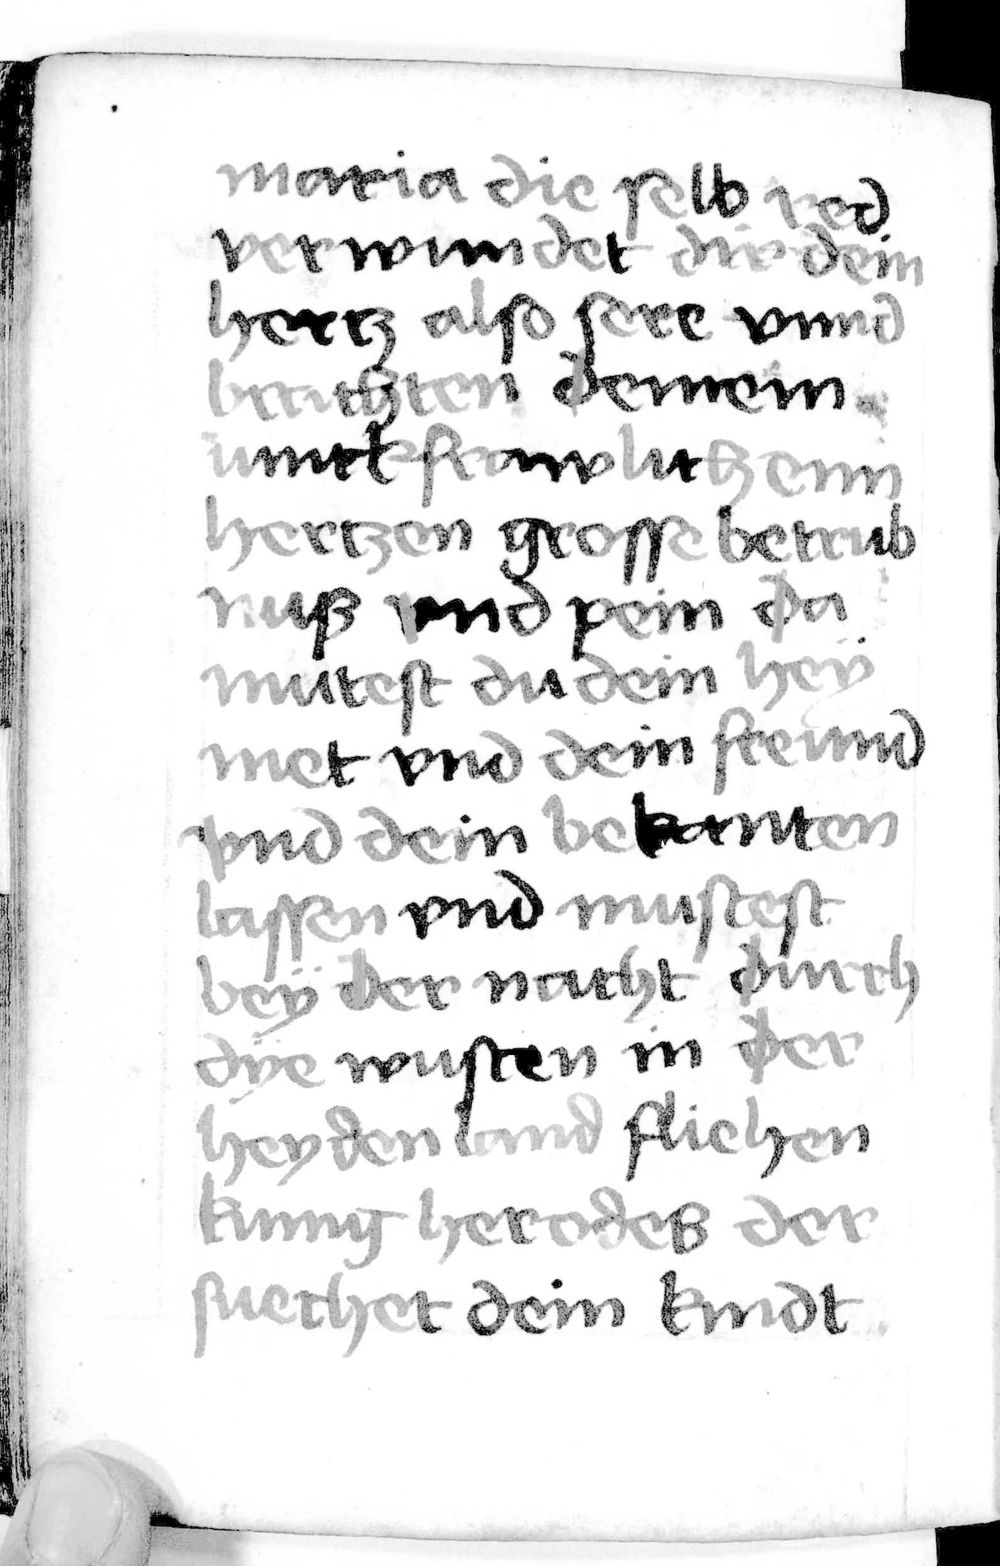 maria die selb red
verwundet dir dein
hertz also sere vnnd
brachten deinem
iunckfrawlichenn
hertzen grosse betrub
nuß vnd pein da
mutest du dein heÿ
met vnd dein freunnd
vnd dein bekanten
lassen vnd mustest
beÿ der nacht durch
dÿe wusten in der
heyden land fliehen
kunig herodes der
suechet dein kindt